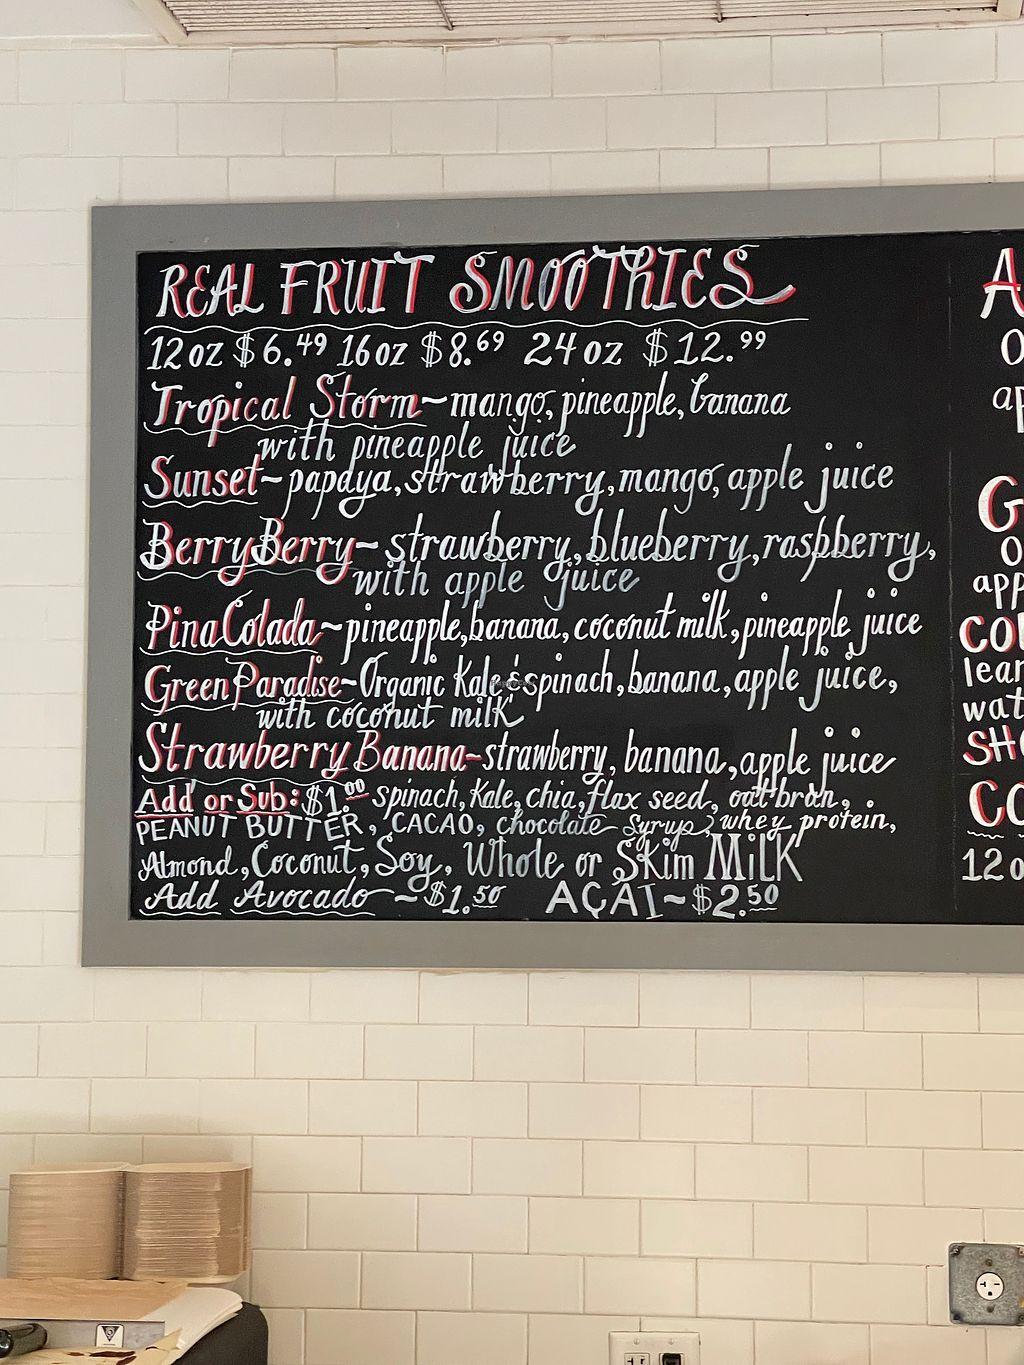 REAL FRUIT SMOOTHIES
12 oz $6.49 16 oz $8.69 24 oz $12.99
Tropical Storm~mango, pineapple, banana
with pineapple juice
Sunset~papaya, strawberry, mango, apple juice
Berry Berry~ strawberry, blueberry, raspberry,
with apple juice
Pina Colada~pineapple, banana, coconut milk, pineapple juice
Green Paradise~Organic Kale & spinach, banana, apple juice,
with coconut milk
Strawberry Banana~strawberry, banana, apple juice
Add or Sub: $1.00 spinach, Kale, chia, flax seed, oat bran,
PEANUT BUTTER, CACAO, chocolate syrup, whey protein,
Almond, Coconut, Soy, Whole or Skim MiLK
Add Avocado ~$1.50 AÇAI~$2.50
A
G
app
COU
lean
wat
SH
CO
12 o